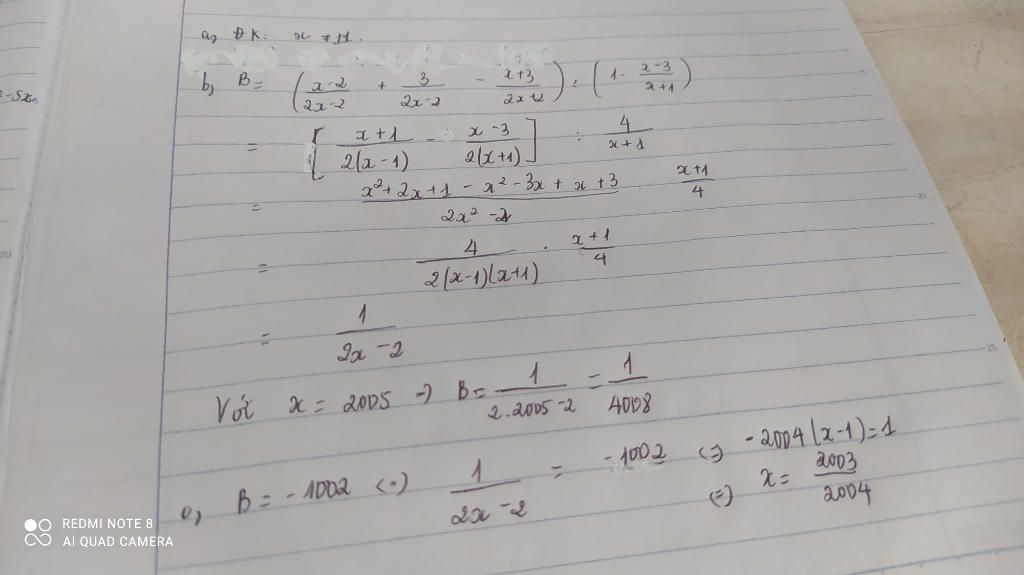 a, ĐK: x ≠ ±1.
b, B = (x-2/2x-2 + 3/2x-2 - x+3/2x+2) : (1 - x-3/x+1)
= [x+1/2(x-1) - x-3/2(x+1)] : 4/x+1
= x²+2x+1 - x² - 3x + x + 3/2x² - 2 x+1/4
= 4/2(x-1)(x+1) . x+1/4
= 1/2x-2
Với x = 2005 → B = 1/2.2005-2 = 1/4008
c, B = -1002 <=> 1/2x-2 = -1002 <=> -2004(x-1)=1
<=> x = 2003/2004
-5x
20
20
25
REDMI NOTE 8
AI QUAD CAMERA